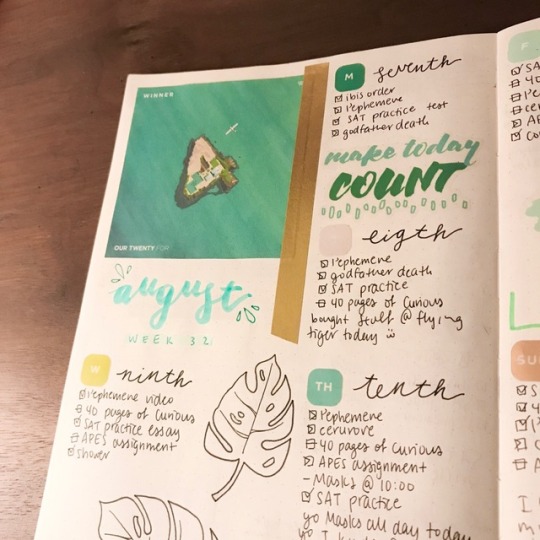 WINNER
OUR TWENTY FOR
august
WEEK 32
M seventh
ibis order
l'ephemere
SAT practice test
godfather death
make today
COUNT
eigth
l'ephemere
godfather death
SAT practice
40 pages of Curious
bought stuff @ flying
tiger today
W ninth
l'ephemere video
40 pages of Curious
SAT practice essay
APES assignment
shower
TH tenth
l'ephemere
40 pages of Curious
APES assignment
- Masks @ 10:00
SAT practice
yo Masks all day today
F
SA
40
l'e
cer
APE
SU
S